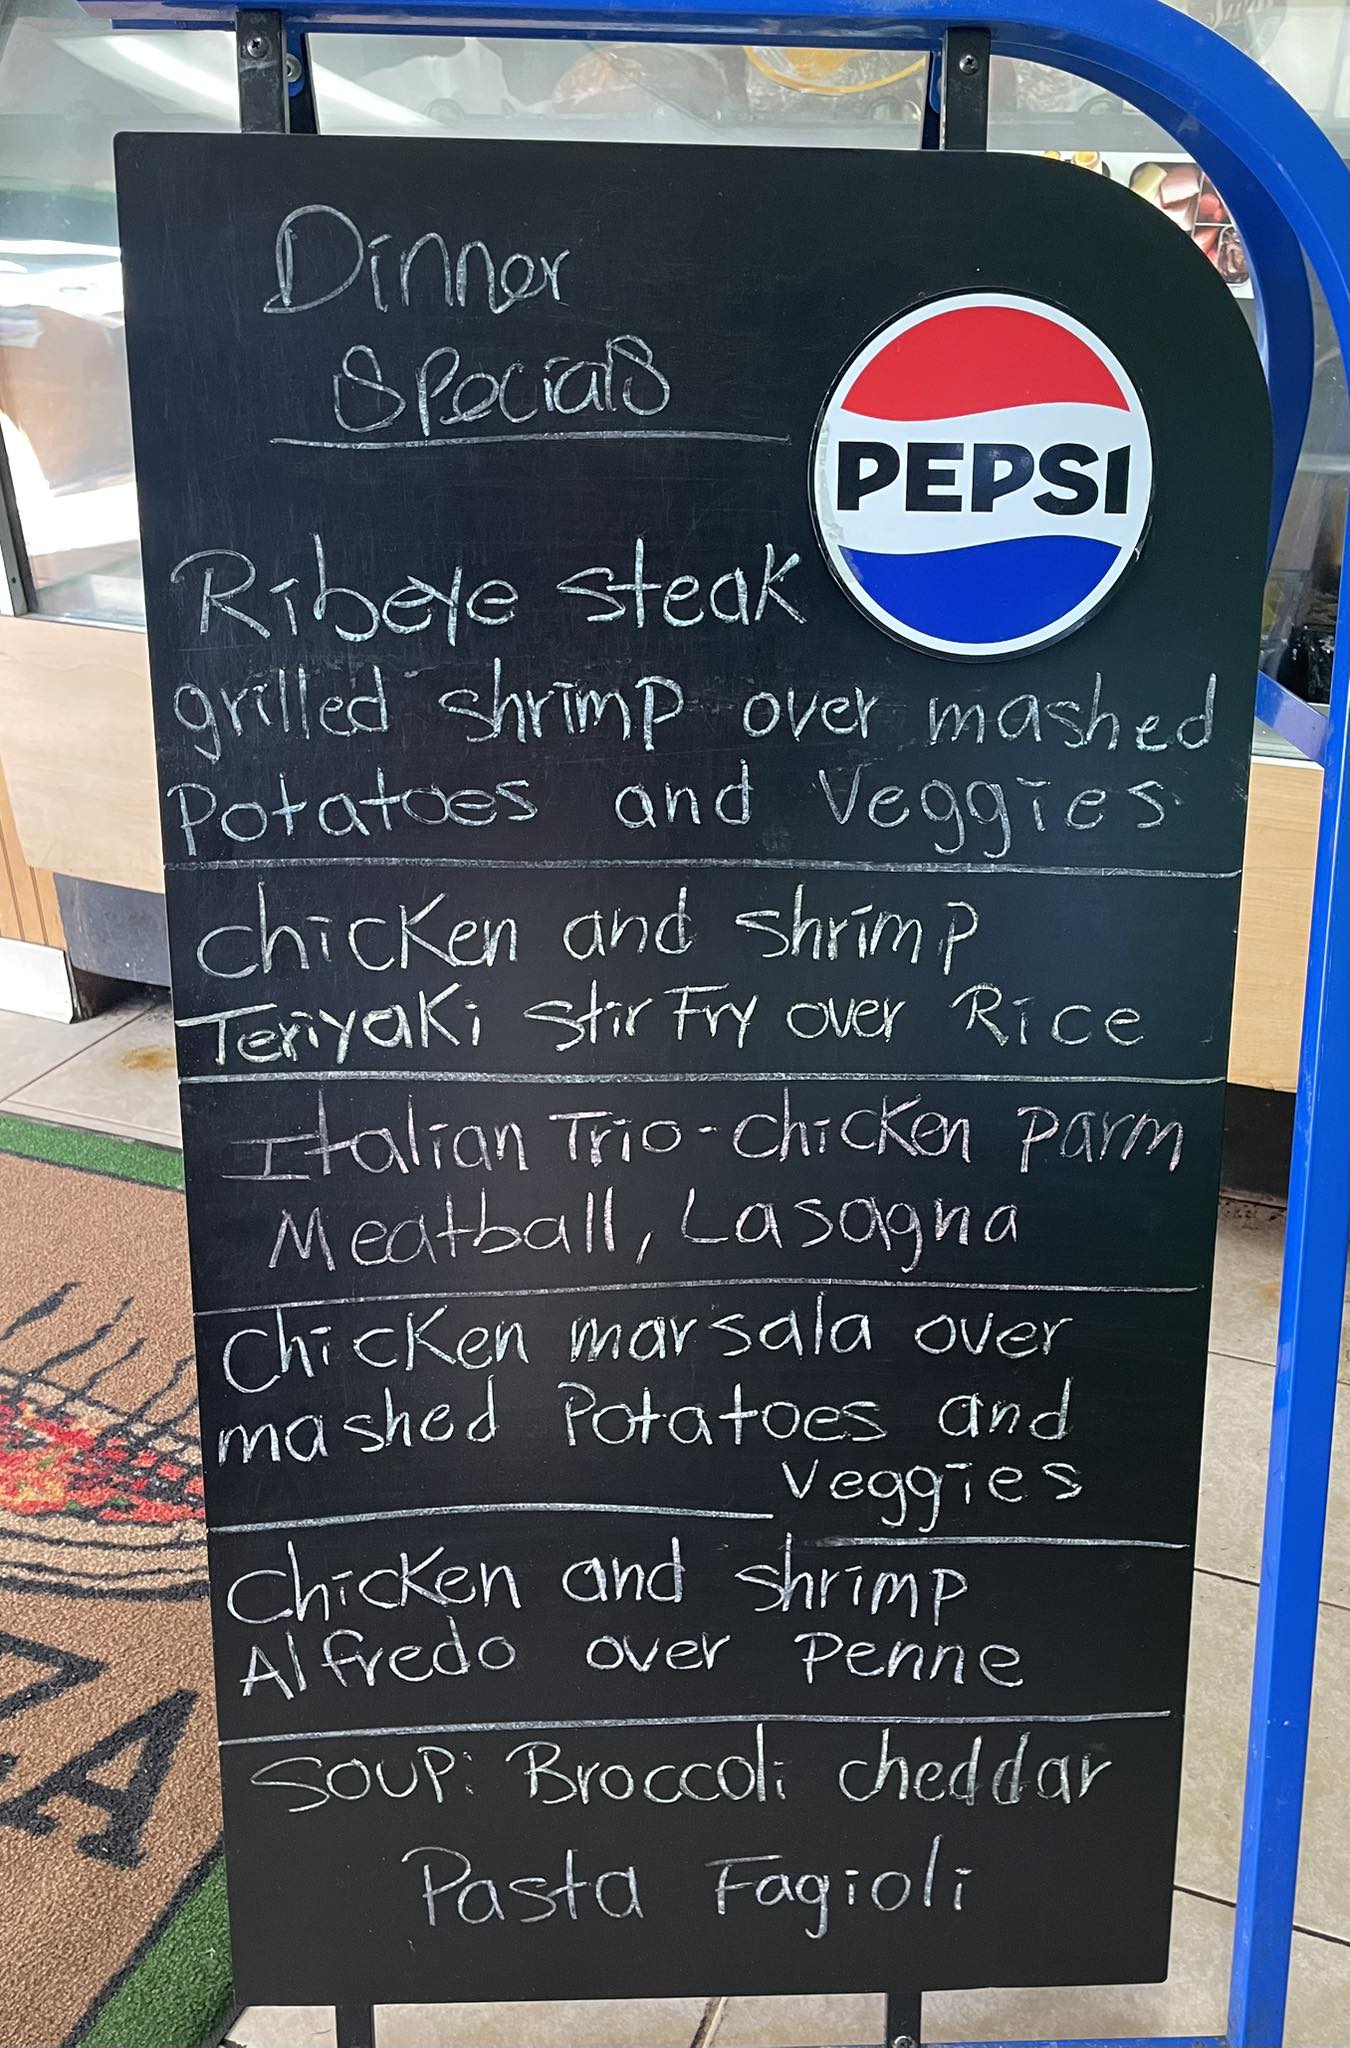 Dinner
Specials
PEPSI
Ribeye steak
grilled shrimp over mashed
Potatoes and Veggies
Chicken and shrimp
Teriyaki stir Fry over Rice
Italian Trio-chicken parm
Meatball, Lasagna
Chicken marsala over
mashed Potatoes and
Veggies
Chicken and shrimp
Alfredo over Penne
Soup: Broccoli cheddar
Pasta Fagioli